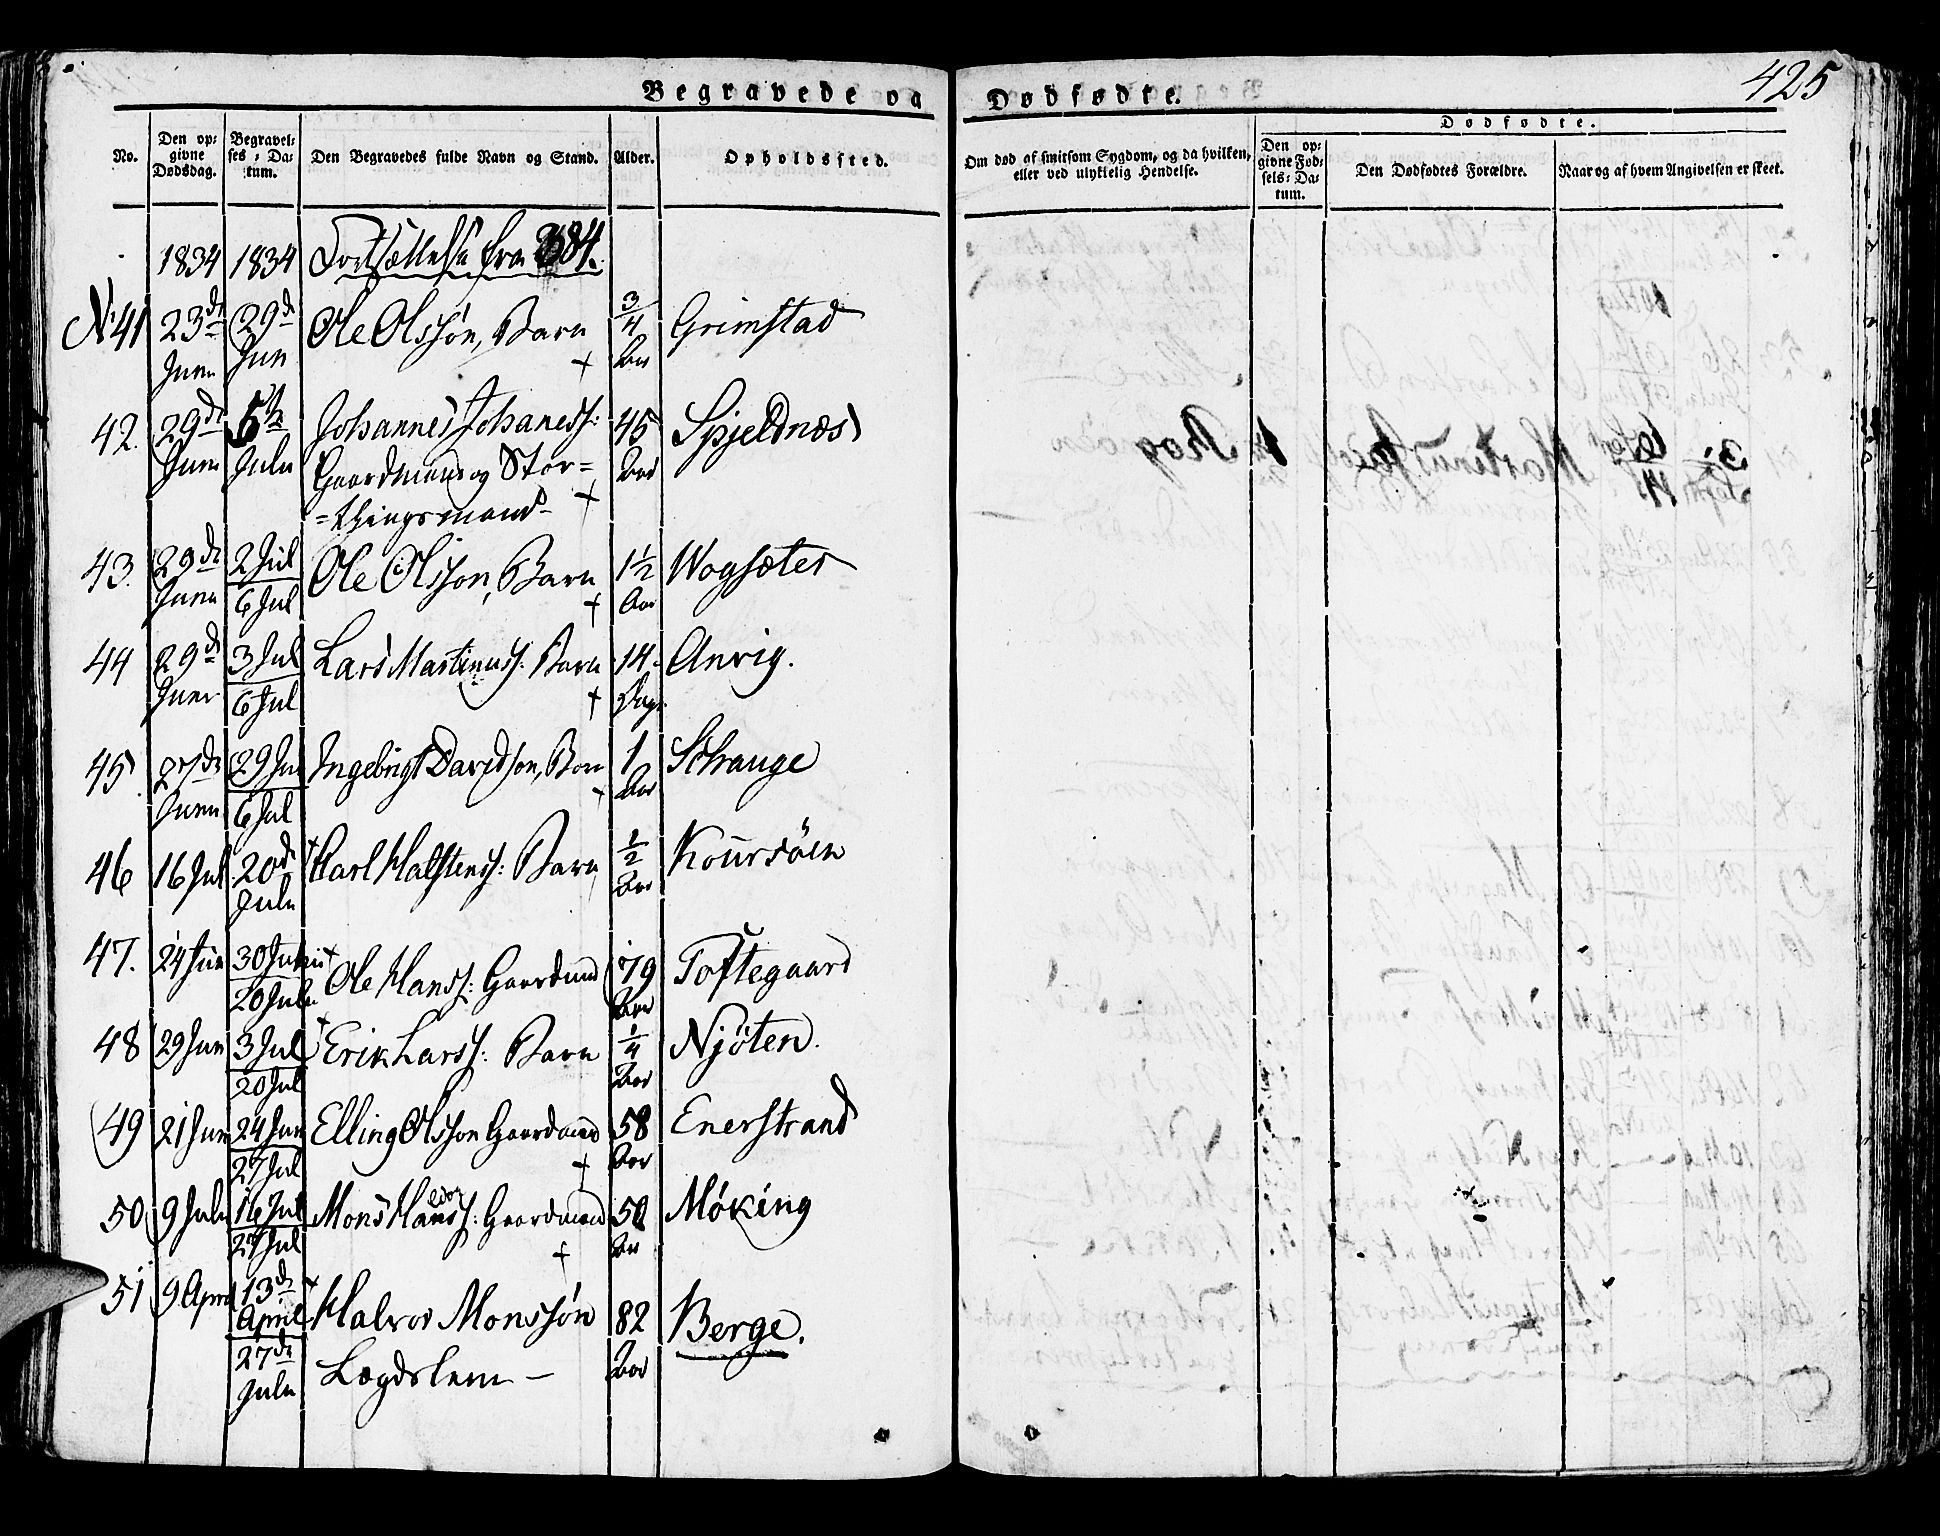 Begravede og Dødfødte.
425
No.
Den op-
givne
Dødsdag.
Begravel-
ses-Da-
tum.
Den Begravedes fulde Navn og Stand.
Alder.
Opholdssted.
Om død af smitsom Sygdom, og da hvilken,
eller ved ulyklelig Hendelse.
Dødfødte.
Den op-
givne Fød-
sels-Da-
tum.
Den Dødfødtes Forældre.
Naar og af hvem Angivelsen er skeet.
1834 1834 Fortsættelse fra 384.
No 41 23de Juni 29de Jun Ole Olssøn, Barn 3/4 Aar Grimstad
42. 29de Juni 5te Juli Johannes Johaness: 45 Aar Spjeldnæs
Gaardmand og Stor=
=thingsmand
43. 29de Juni 2 Jul 6 Jul Ole Olsson, Barn 1 1/2 Aar Wogsæter
44 29de Juni 3 Jul 6 Jul Lars Martinuss. Barn 14. Dage Anvig.
45 27de Juni 29 Jun 6 Jul Ingebrigt Davidson, Barn 1 Aar Schauge
46 16 Jul 20de Juli Karl Halstenss: Barn 1/2 Aar Koursöen
47. 24 Jun 30 Juni 20 Juli Ole Hanss: Gaardmd 79 Aar Toftegaard
48 29 Jun 3 Jul 20 Jul Erik Larss: Barn 1/4 Aar Njöten.
49 21 Jun 24 Jun 27 Jul Elling Olsson Gaardmand 58 Aar Enerstrand
50 9 Juli 16 Jul 27 Jul Mons Hanss: Gaardmand 50 Aar Möking
51 9 April 13de April 27de Juli Halvor Monssøn 82 Aar Berge.
Lægdslem —